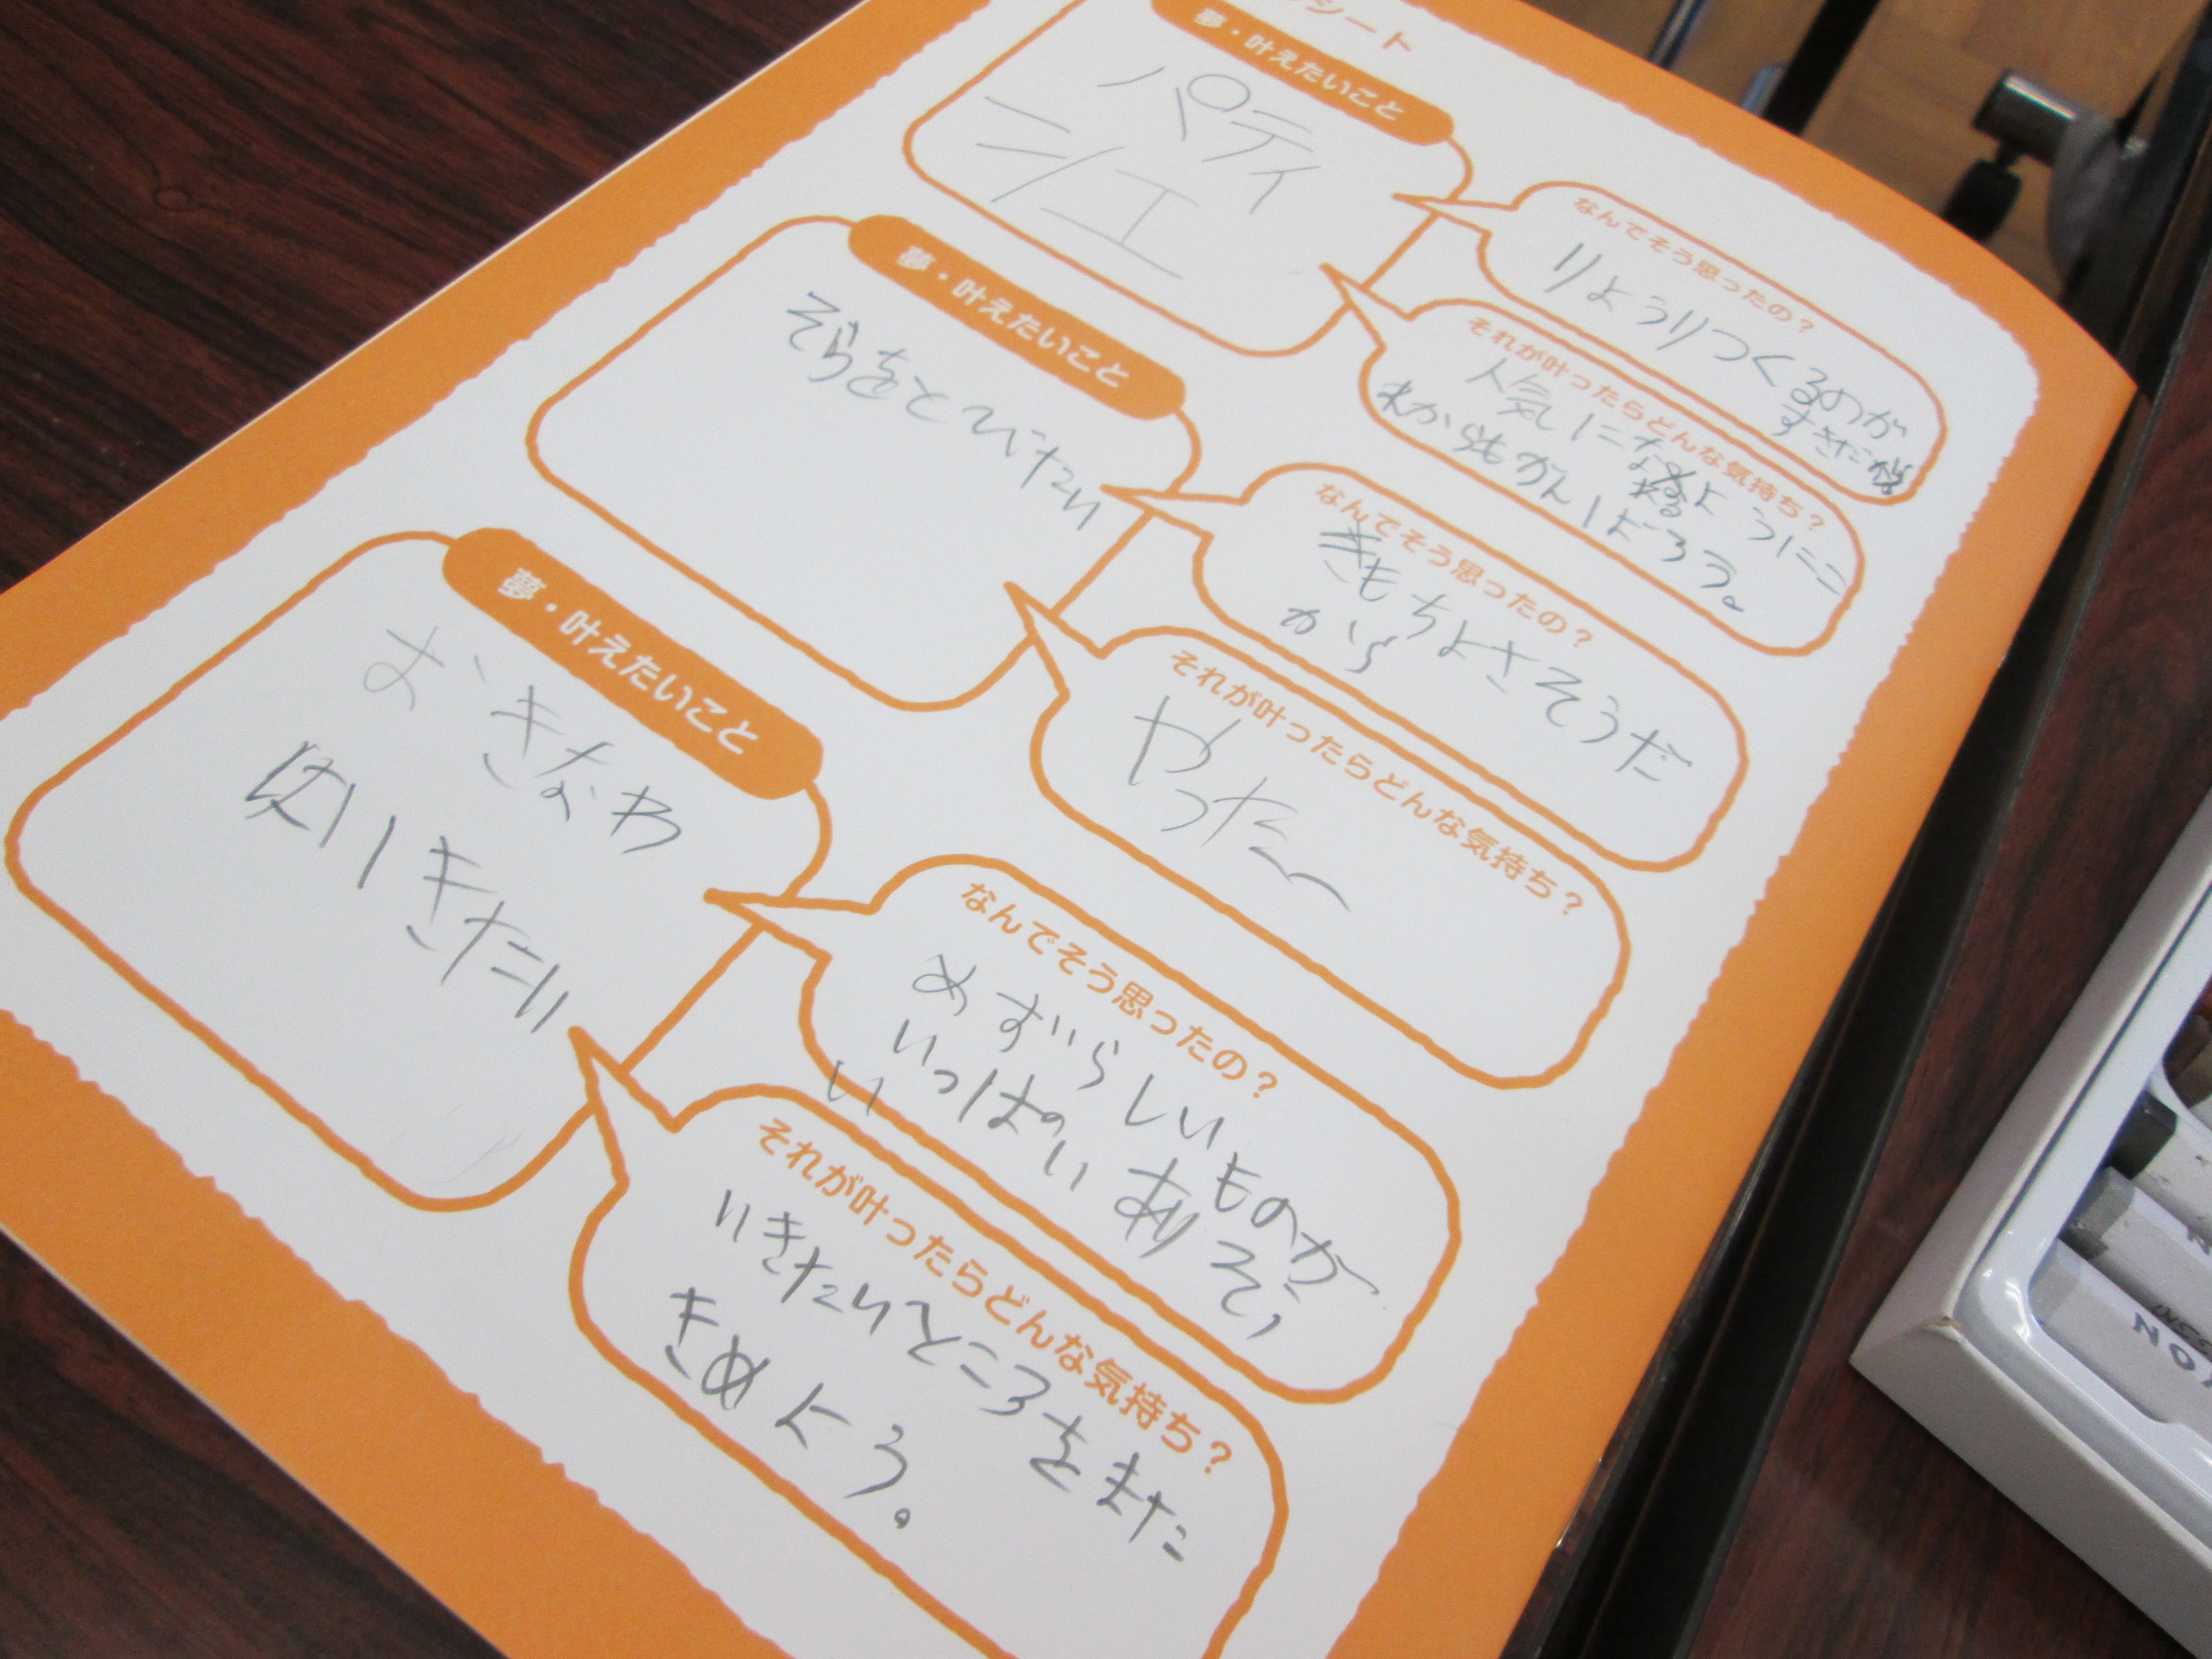 シート
夢・叶えたいこと
パティ
シエ
なんでそう思ったの?
りょうりつくるのが
すきだ
それが叶ったらどんな気持ち?
人気になれるように
これからもがんばろう。
夢・叶えたいこと
そらをとびたい
なんでそう思ったの?
きもちよさそうだ
から
それが叶ったらどんな気持ち?
やったー
夢・叶えたいこと
おきなわ
にいきたい
なんでそう思ったの?
めずらしいものが
いっぱいありそう
それが叶ったらどんな気持ち?
いきたいところをまた
きめよう。
NO